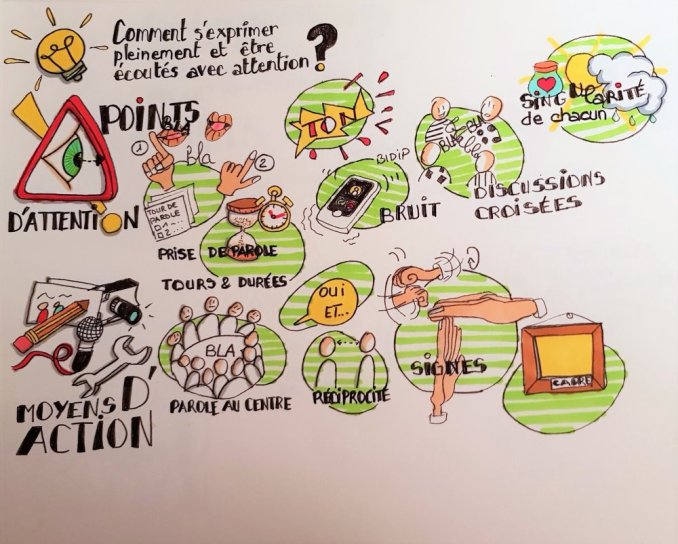 Comment s'exprimer
pleinement et être
écoutés avec attention ?
POINTS
D'ATTENTION
Bla
Bla
1
2
TOUR DE
PAROLE
01...
02...
PRISE DE PAROLE
TOURS & DURÉES
TON
BIDIP
BRUIT
BLA BLA
DISCUSSIONS
CROISÉES
SINGULARITÉ
de chacun
MOYENS D'
ACTION
BLA
PAROLE AU CENTRE
OUI
ET...
RÉCIPROCITÉ
SIGNES
CADRE